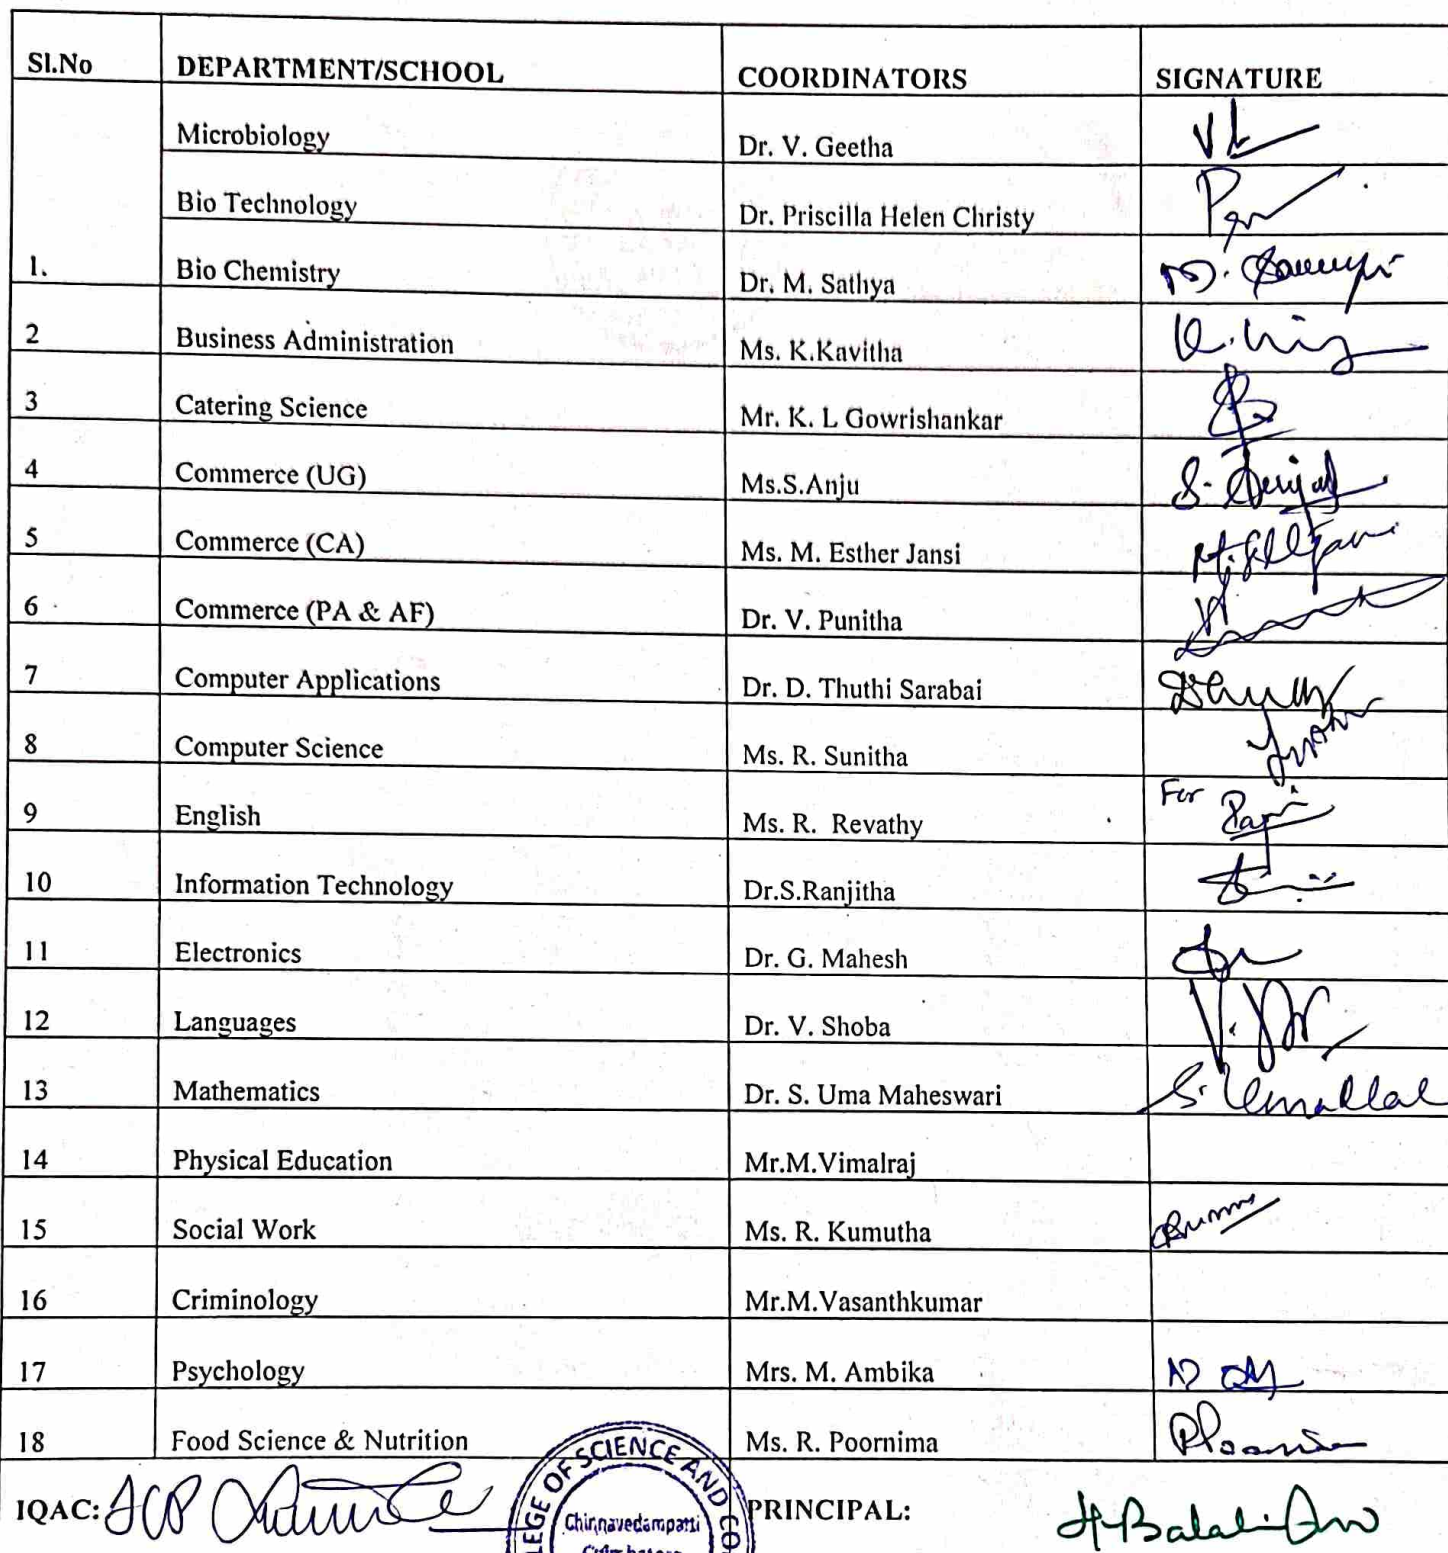 Sl.No DEPARTMENT/SCHOOL COORDINATORS SIGNATURE
Microbiology Dr. V. Geetha
Bio Technology Dr. Priscilla Helen Christy
1. Bio Chemistry Dr. M. Sathya
2 Business Administration Ms. K.Kavitha
3 Catering Science Mr. K. L Gowrishankar
4 Commerce (UG) Ms.S.Anju
5 Commerce (CA) Ms. M. Esther Jansi
6 Commerce (PA & AF) Dr. V. Punitha
7 Computer Applications Dr. D. Thuthi Sarabai
8 Computer Science Ms. R. Sunitha
9 English Ms. R. Revathy For
10 Information Technology Dr.S.Ranjitha
11 Electronics Dr. G. Mahesh
12 Languages Dr. V. Shoba
13 Mathematics Dr. S. Uma Maheswari
14 Physical Education Mr.M.Vimalraj
15 Social Work Ms. R. Kumutha
16 Criminology Mr.M.Vasanthkumar
17 Psychology Mrs. M. Ambika
18 Food Science & Nutrition Ms. R. Poornima
IQAC: PRINCIPAL:
OF SCIENCE AND
Chinnavedampatti
Coimbatore